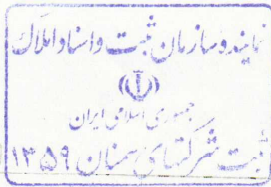 نماینده سازمان ثبت و اسناد و املاک
جمهوری اسلامی ایران
ثبت شرکتهای سمنان ۱۳۵۹